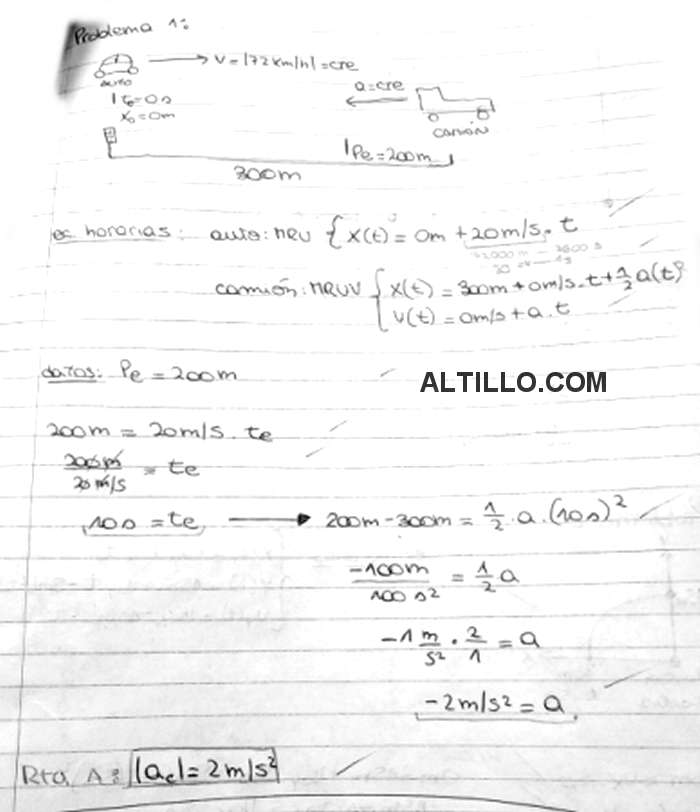 Problema 1:
V=|72km/h|=cte
AUTO
a=cte
t₀=0s
X₀=0m
CAMIÓN
Pe=200m
300m
ec horarias: auto: MRU { X(t)=0m+20m/s.t
camión: MRUV { X(t)=300m+0m/s.t+1/2 a(t)²
V(t)=0m/s+a.t
datos: Pe=200m
ALTILLO.COM
200m=20m/s.te
200m/20m/s = te
10s=te → 200m-300m=1/2.a.(10s)²
-100m/100s² = 1/2 a
-1 m/s² . 2/1 = a
-2m/s²=a
Rta A: |ac|=2m/s²